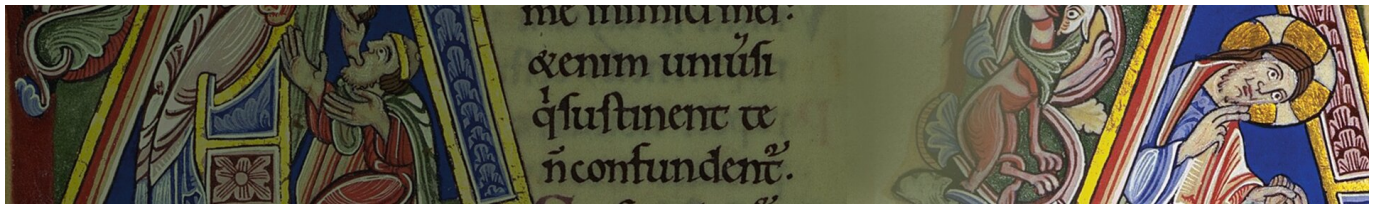 me inimici mei:
&enim uniu̾si
qͥsustinent te
n̄confundent᷑.